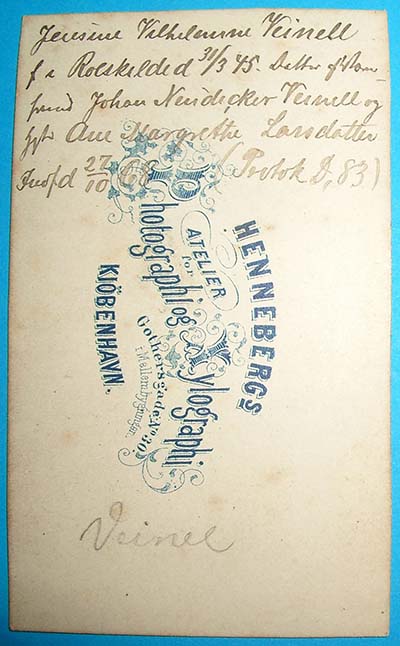 Jensine Vilhelmine Veinell
f i Roeskilde d 31/3 45. Datter af
Johan Neidecker Veinell og
Ane Margrethe Larsdatter
d 27/10 68 (Protok D, 83)
HENNEBERGS
ATELIER
for
Photographi og Xylographi
Gothersgade No 30
i Mellembygningen.
KIÖBENHAVN.
Veinel